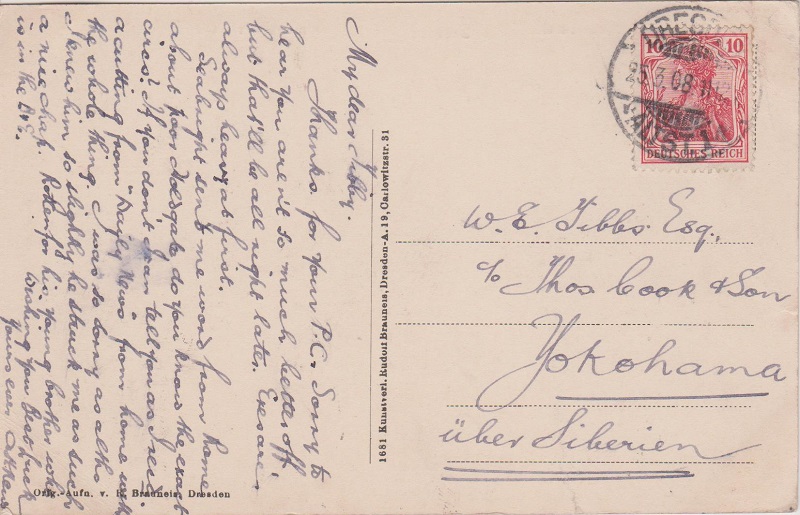 My dear Tibby.
Thanks for your P.C. Sorry to
hear you aren't so much better off
but that'll be all right later. Exes are
always heavy at first.
Seabright sent me word from home
about poor do you know the exact
circs? If you don't I can tell you as I recd.
a cutting from "Daily News" from home with
the whole thing. I was so sorry as altho'
I knew him so slightly he struck me as such
a nice chap. Rotten for his young brother who
is in the
Wishing you best luck
Yours ever
Orig.-Aufn. v. R. Brauneis, Dresden
1681 Kunstverl. Rudolf Brauneis, Dresden-A. 19, Carlowitzstr. 31
DRESDEN
25.3.08
ALTST.
10 10
DEUTSCHES REICH
W. E. Tibbs Esq.,
c/o Thos Cook & Son
Yokohama
über Siberien